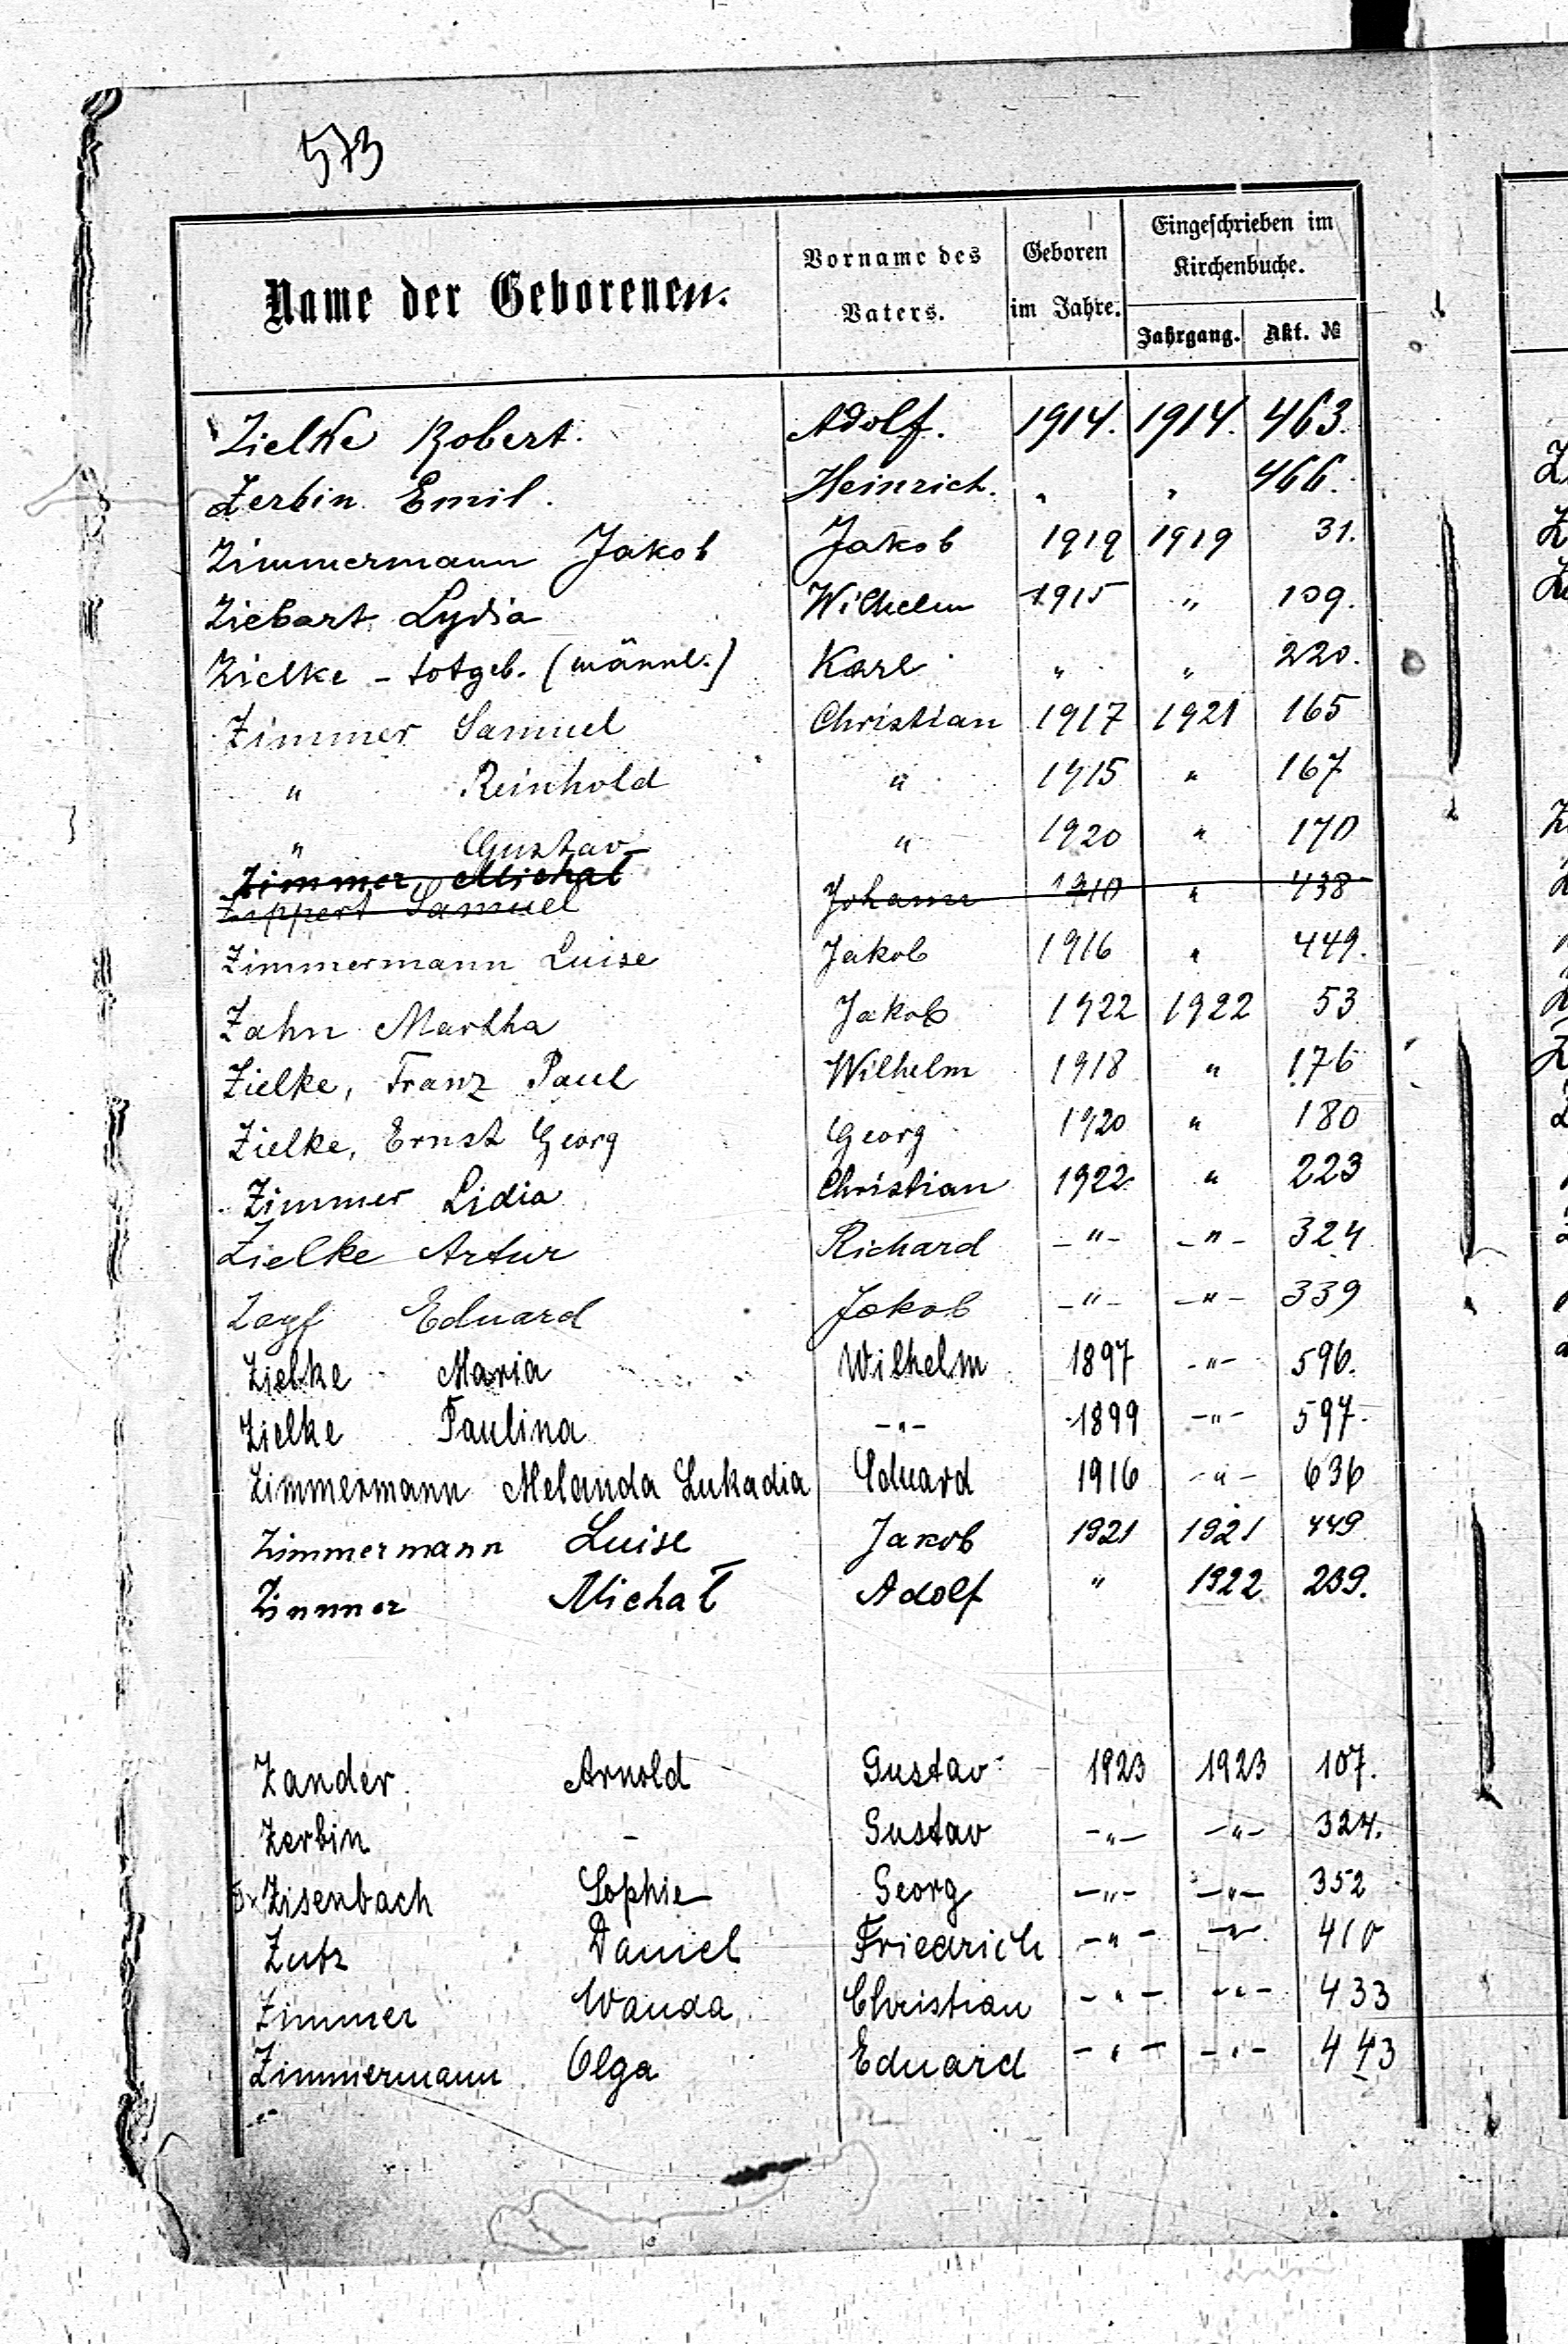 573
Name der Geborenen. Vorname des Vaters. Geboren im Jahre. Eingeschrieben im Kirchenbuche.
Jahrgang. Akt. №
Zielke Robert. Adolf. 1914. 1914. 463.
Zerbin Emil. Heinrich. " " 466.
Zimmermann Jakob Jakob 1919 1919 31.
Ziebart Lydia Wilhelm 1915 " 109.
Zielke - totgeb. (männl.) Karl " " 220.
Zimmer Samuel Christian 1917 1921 165
" Reinhold " 1915 " 167
" Gustav " 1920 " 170
Zimmer, Michał
Zippert Samuel Johann 1910 " 438
Zimmermann Luise Jakob 1916 " 449.
Zahn Martha Jakob 1922 1922 53
Zielke, Franz Paul Wilhelm 1918 " 176
Zielke, Ernst Georg Georg 1920 " 180
Zimmer Lidia Christian 1922 " 223
Zielke Artur Richard -"- -"- 324
Eduard Jakob -"- -"- 339
Zielke Maria Wilhelm 1897 -"- 596.
Zielke Paulina -"- 1899 -"- 597.
Zimmermann Melanda Lukadia Eduard 1916 -"- 636
Zimmermann Luise Jakob 1921 1921 449
Zimmer Michał Adolf " 1922 239.
Zander Arnold Gustav 1923 1923 107.
Zerbin - Gustav -"- -"- 324.
Zisenbach Sophie Georg -"- -"- 352
Zutz Daniel Friedrich -"- -"- 410
Zimmer Wanda Christian -"- -"- 433
Zimmermann Olga Eduard -"- -"- 443